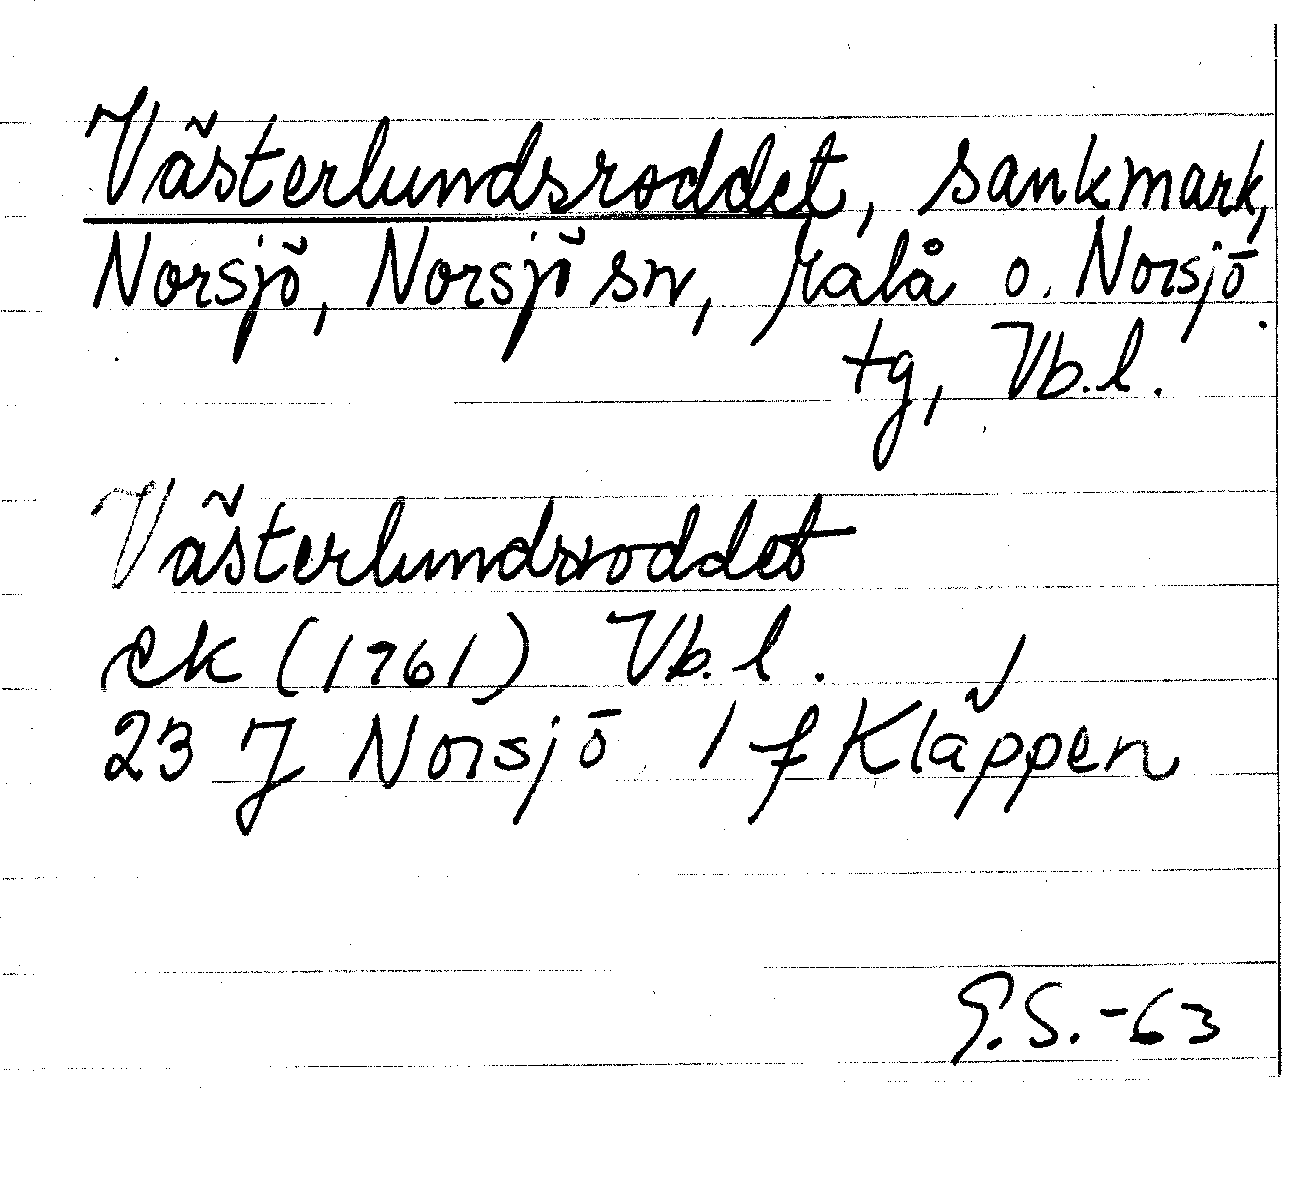 Västerlundsroddet, sankmark,
Norsjö, Norsjö sn, Malå o. Norsjö.
tg, Vb.l.
Västerlundsroddet
ek (1961) Vb.l.
23 J Norsjö 1 f Kläppen
G.S.-63